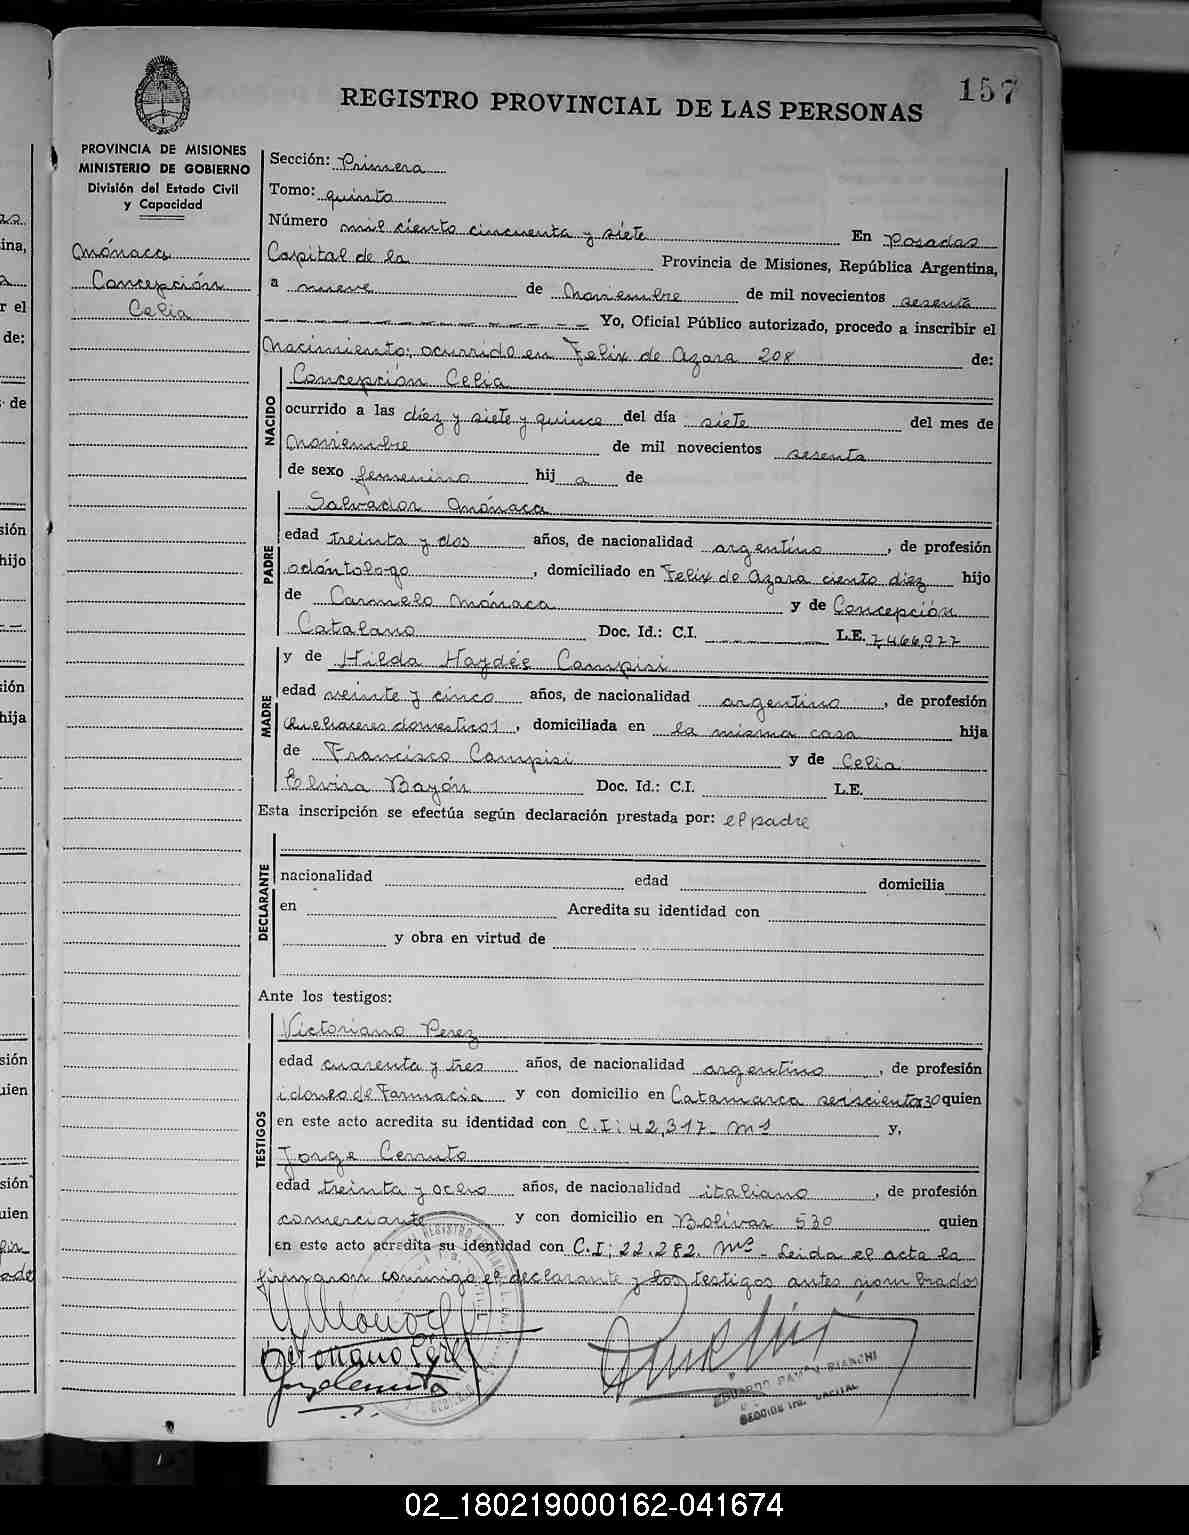 157
REGISTRO PROVINCIAL DE LAS PERSONAS
PROVINCIA DE MISIONES
MINISTERIO DE GOBIERNO
División del Estado Civil
y Capacidad
Mónaca
Concepción
Celia
Sección: Primera
Tomo: quinto
Número mil ciento cincuenta y siete En Posadas
Capital de la Provincia de Misiones, República Argentina,
a nueve de Noviembre de mil novecientos sesenta
Yo, Oficial Público autorizado, procedo a inscribir el
Nacimiento: ocurrido en Felix de Azara 208 de:
NACIDO
Concepción Celia
ocurrido a las diez y siete y quince del día siete del mes de
Noviembre de mil novecientos sesenta
de sexo femenino hij a de
PADRE
Salvador Mónaca
edad treinta y dos años, de nacionalidad argentino, de profesión
odóntologo, domiciliado en Felix de Azara ciento diez hijo
de Carmelo Mónaca y de Concepción
Catalano Doc. Id.: C.I. L.E. 7,466,977
MADRE
y de Hilda Haydée Campisi
edad veinte y cinco años, de nacionalidad argentino, de profesión
Quehaceres domesticos, domiciliada en la misma casa hija
de Francisco Campisi y de Celia
Elvira Bayón Doc. Id.: C.I. L.E.
Esta inscripción se efectúa según declaración prestada por: el padre
DECLARANTE
nacionalidad edad domicilia
en Acredita su identidad con
y obra en virtud de
Ante los testigos:
TESTIGOS
Victoriano Perez
edad cuarenta y tres años, de nacionalidad argentino, de profesión
idoneo de Farmacia y con domicilio en Catamarca seiscientos 30 quien
en este acto acredita su identidad con C.I: 42,317. Ms y,
Jorge Cerruto
edad treinta y ocho años, de nacionalidad italiano, de profesión
comerciante y con domicilio en Bolivar 530 quien
en este acto acredita su identidad con C.I: 22.282. Ms - Leida el acta la
firmaron conmigo el declarante y los testigos antes nombrados
EDUARDO RAMON BIANCHI
SECCION 1ra. CAPITAL
02_180219000162-041674